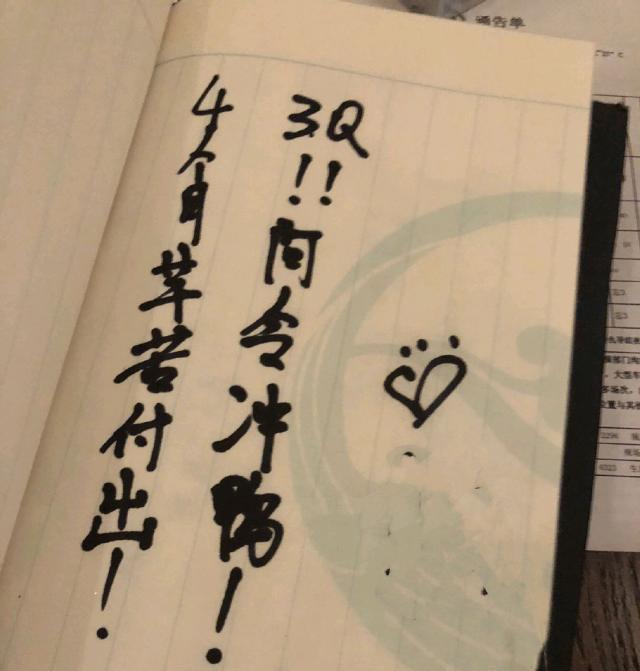 3Q!!问令冲鸭!
4个月辛苦付出!
通告单